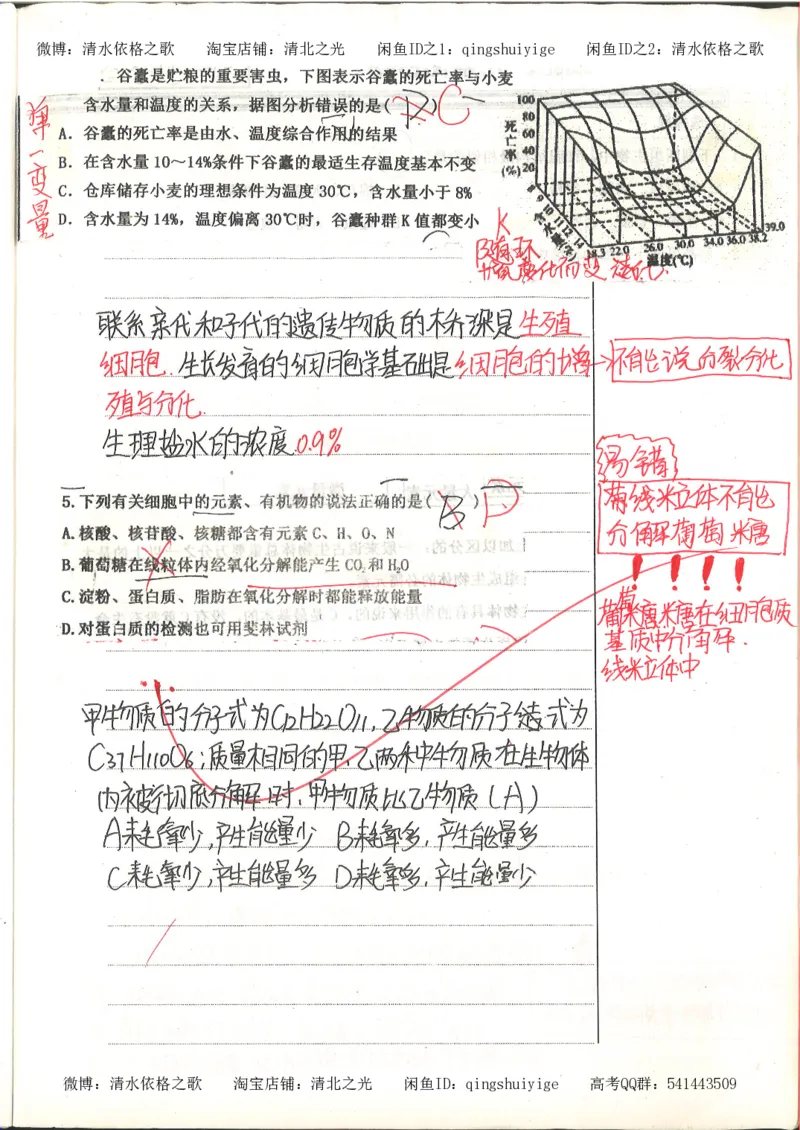 微博：清水依格之歌 淘宝店铺：清北之光 闲鱼ID之1：qingshuiyige 闲鱼ID之2：清水依格之歌
．谷蠹是贮粮的重要害虫，下图表示谷蠹的死亡率与小麦
含水量和温度的关系，据图分析错误的是( D ) C
A．谷蠹的死亡率是由水、温度综合作用的结果
B．在含水量10～14%条件下谷蠹的最适生存温度基本不变
C．仓库储存小麦的理想条件为温度30℃，含水量小于8%
D．含水量为14%，温度偏离30℃时，谷蠹种群K值都变小
第一变量
死亡率(%)
100
80
60
40
20
8 9 10 11 12 14
含水量(%)
18.3 22.0 26.0 30.0 34.0 36.0 38.2 39.0
温度(℃)
K
随环
变化
联系亲代和子代的遗传物质的桥梁是生殖
细胞．生长发育的细胞学基础是细胞的增→不能说分裂分化
殖与分化.
生理盐水的浓度0.9%
易错
5.下列有关细胞中的元素、有机物的说法正确的是( B ) D
A.核酸、核苷酸、核糖都含有元素C、H、O、N
B.葡萄糖在线粒体内经氧化分解能产生CO₂和H₂O
C.淀粉、蛋白质、脂肪在氧化分解时都能释放能量
D.对蛋白质的检测也可用斐林试剂
线粒体不能
分解葡萄糖
！！！！
葡萄糖在细胞质
基质中分解．
线粒体中
甲生物质的分子式为C12H22O11，乙生物质的分子结式为
C37H110O6；质量相同的甲、乙两种生物质在生物体
内被彻底分解时，甲生物质比乙生物质（A）
A耗氧少，产生能量少 B耗氧多，产生能量多
C耗氧少，产生能量多 D耗氧多，产生能量少
微博：清水依格之歌 淘宝店铺：清北之光 闲鱼ID：qingshuiyige 高考QQ群：541443509